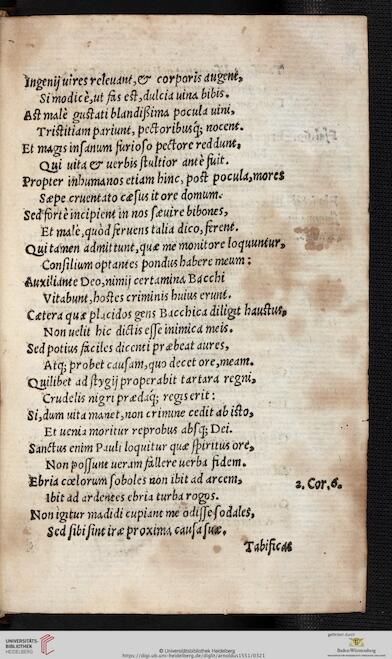 Ingenij uires releuant, & corporis augent,
Si modicè, ut fas est, dulcia uina bibis.
Ast malè gustati blandißima pocula uini,
Tristitiam pariunt, pectoribusq; nocent.
Et magis insanum furioso pectore reddunt,
Qui uita & uerbis stultior antè fuit.
Propter inhumanos etiam hinc, post pocula, mores
Sæpe cruentato cæsus it ore domum.
Sed fortè incipient in nos sæuire bibones,
Et malè, quòd feruens talia dico, ferent.
Qui tamen admittunt, quæ me monitore loquuntur,
Consilium optantes pondus habere meum:
Auxiliante Deo, nimij certamina Bacchi
Vitabunt, hostes criminis huius erunt.
Cætera quæ placidos gens Bacchica diligit haustus,
Non uelit hic dictis esse inimica meis.
Sed potius fáciles dicenti præbeat aures,
Atq; probet causam, quo decet ore, meam.
Quilibet ad stygij properabit tartara regni,
Crudelis nigri prædaq; regis erit:
Si, dum uita manet, non crimine cedit ab isto,
Et uenia moritur reprobus absq; Dei.
Sanctus enim Pauli loquitur quæ spiritus ore,
Non possunt ueram fallere uerba fidem.
Ebria cœlorum soboles non ibit ad arcem,
2. Cor. 6.
Ibit ad ardentes ebria turba rogos.
Non igitur madidi cupiant me odisse sodales,
Sed sibi sint iræ proxima causa suæ.
Tabificas
UNIVERSITÄTS-
BIBLIOTHEK
HEIDELBERG
© Universitätsbibliothek Heidelberg
https://digi.ub.uni-heidelberg.de/diglit/arnoldus1551/0321
gefördert durch
Baden-Württemberg